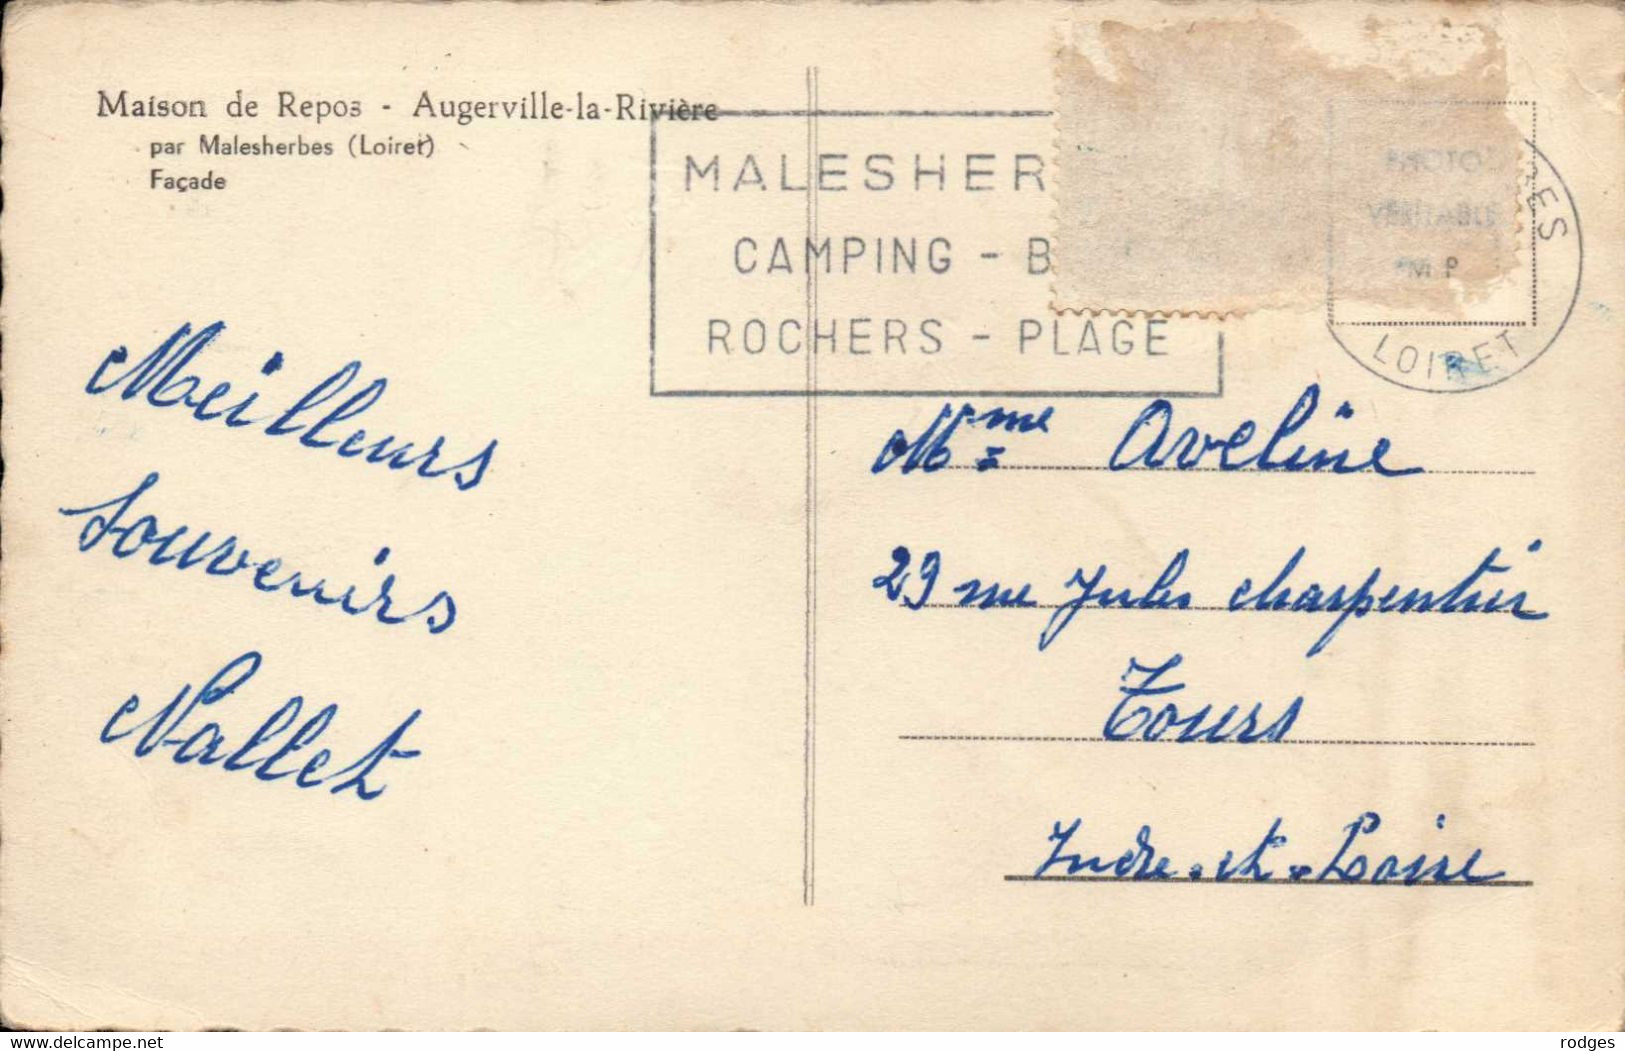 Maison de Repos - Augerville-la-Rivière
par Malesherbes (Loiret)
Façade
MALESHER
CAMPING - B
ROCHERS - PLAGE
PHOTO
VERITABLE
M P
LOIRET
Meilleurs
Souvenirs
Nallet
Mme Aveline
29 rue Jules charpentier
Tours
Indre-et-Loire
delcampe.net
rodges